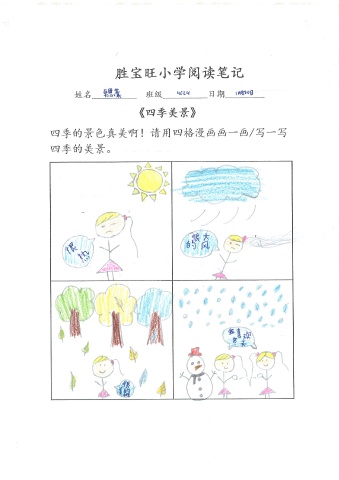 胜宝旺小学阅读笔记
姓名 班级 4C4 日期
《四季美景》
四季的景色真美啊！请用四格漫画画一画/写一写
四季的美景。
很热
很大的风
我喜欢冬天